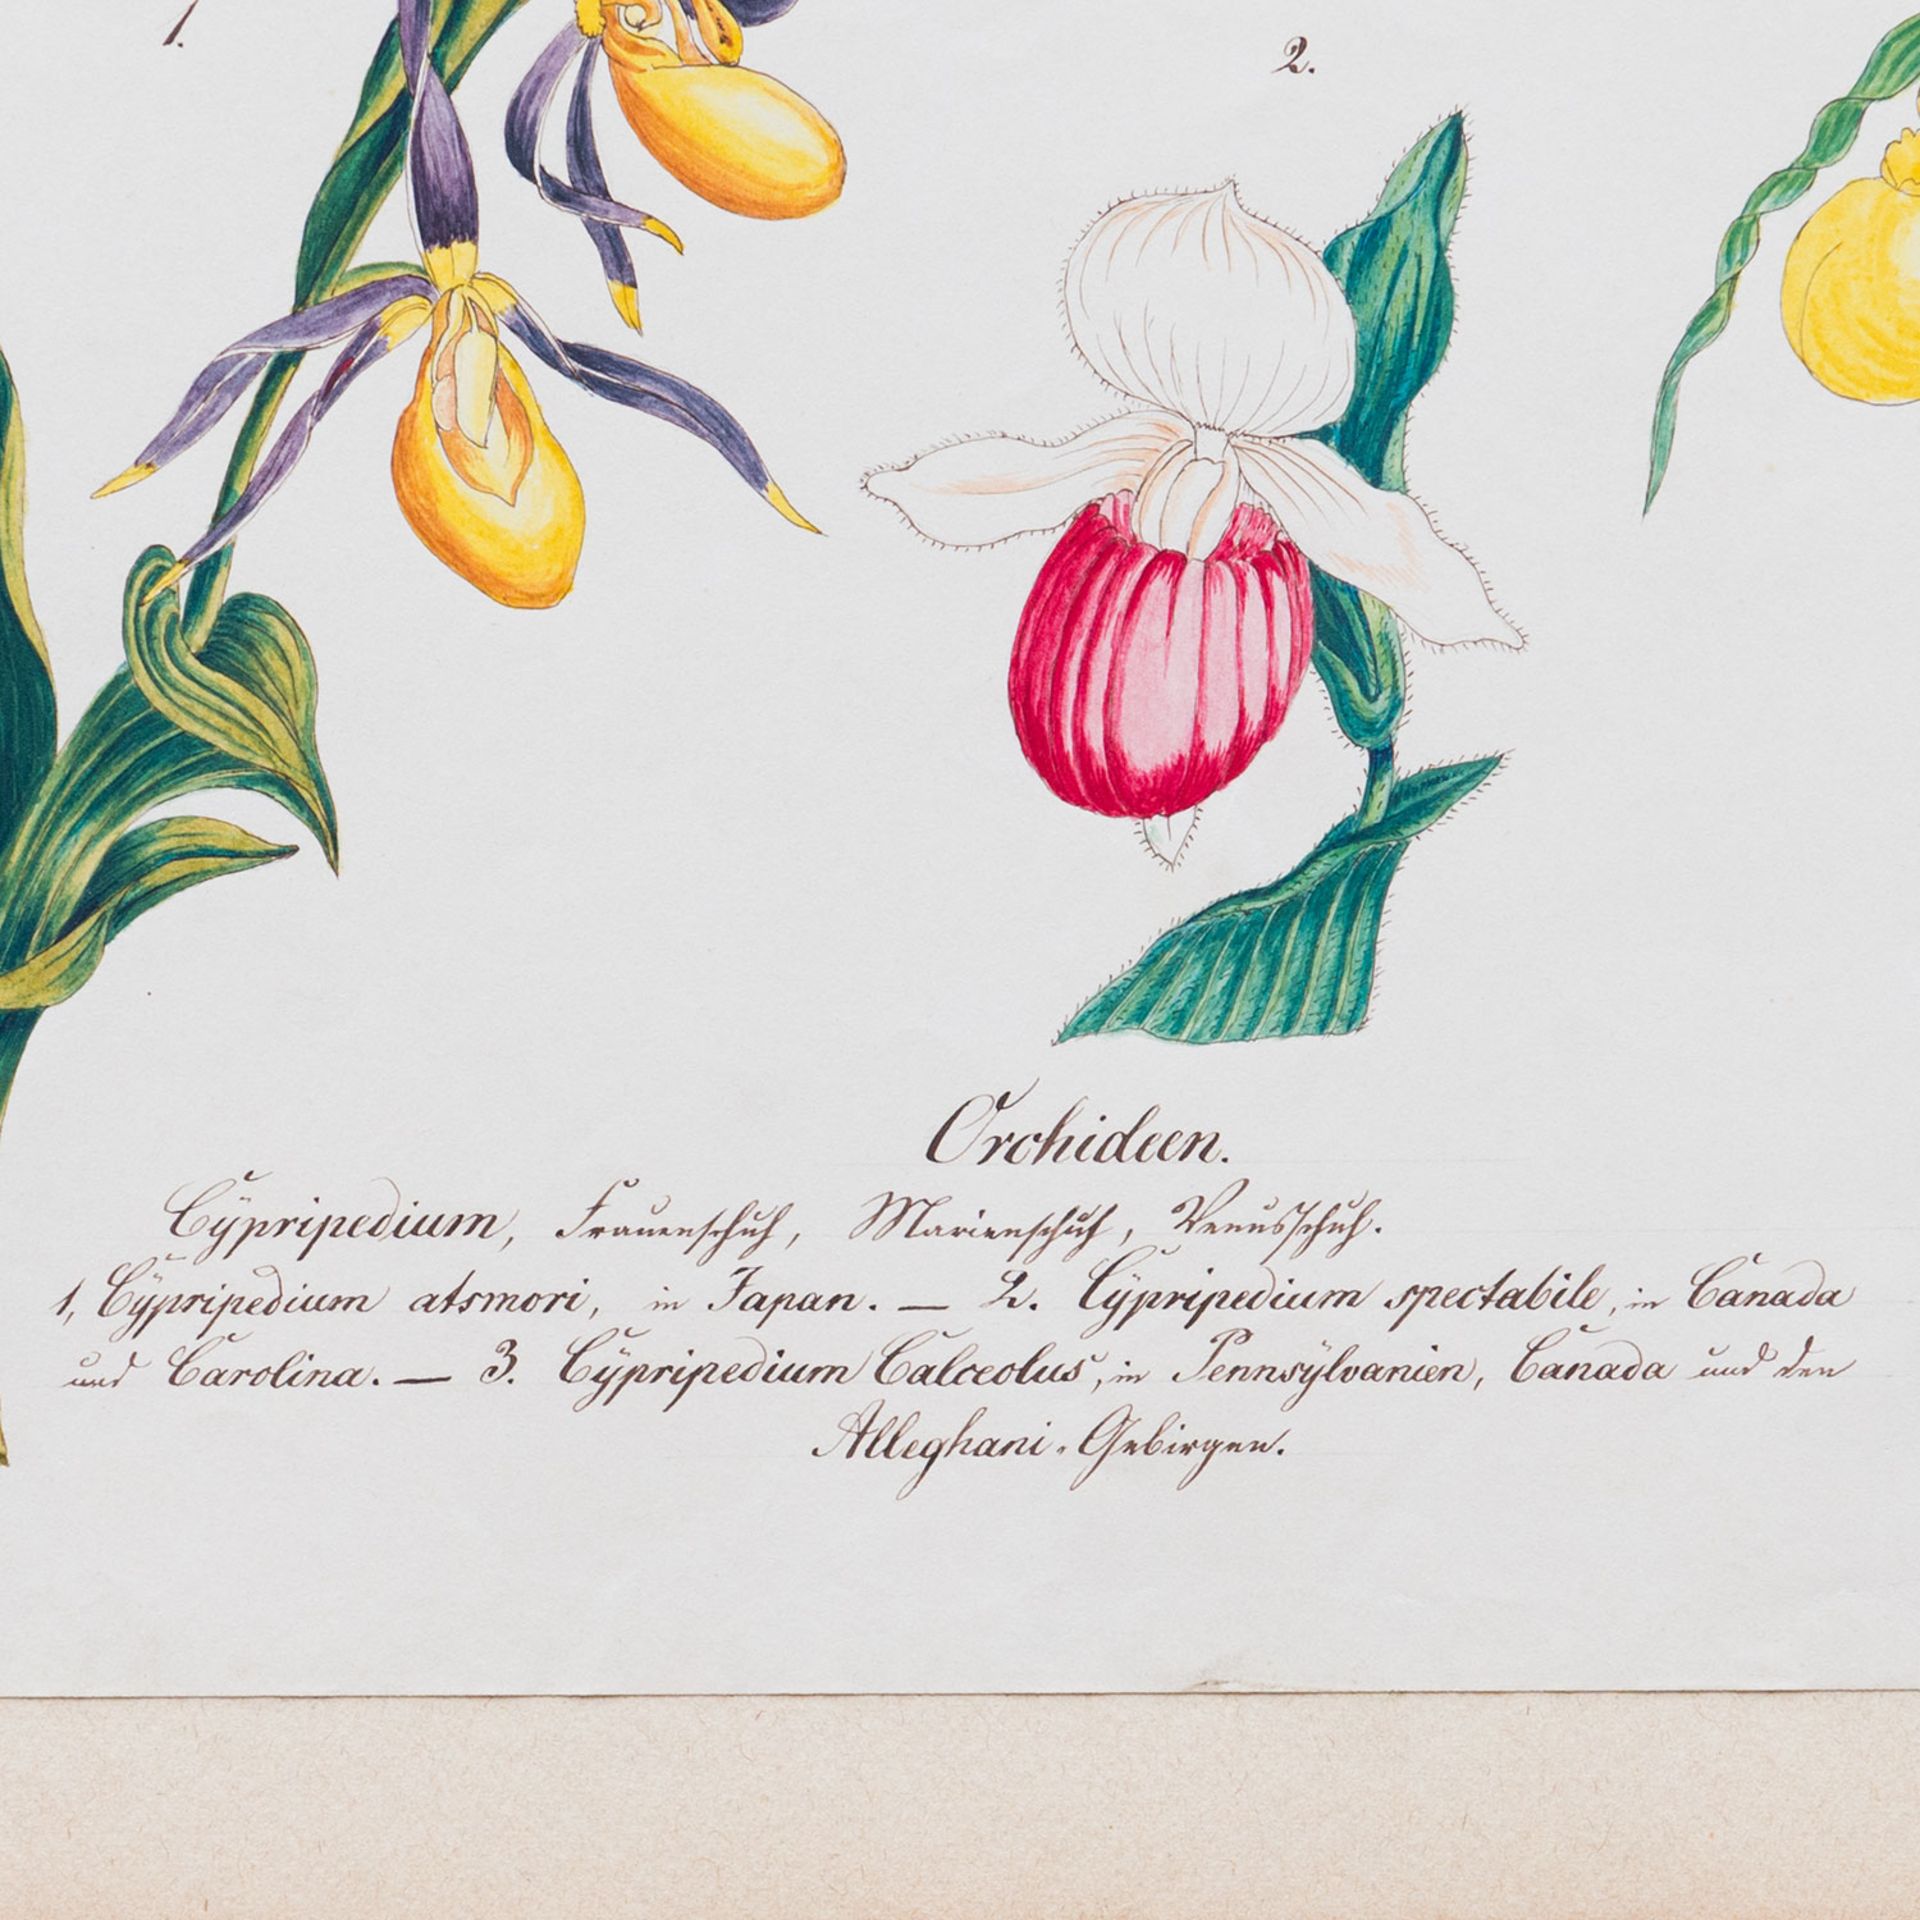 1.
2.
Orchideen.
Cÿpripedium, Frauenschuh, Marienschuh, Venusschuh.
1, Cÿpripedium atsmori, in Japan. — 2. Cÿpripedium spectabile, in Canada
und Carolina. — 3. Cÿpripedium Calceolus, in Pennsÿlvanien, Canada und den
Alleghani-Gebirgen.